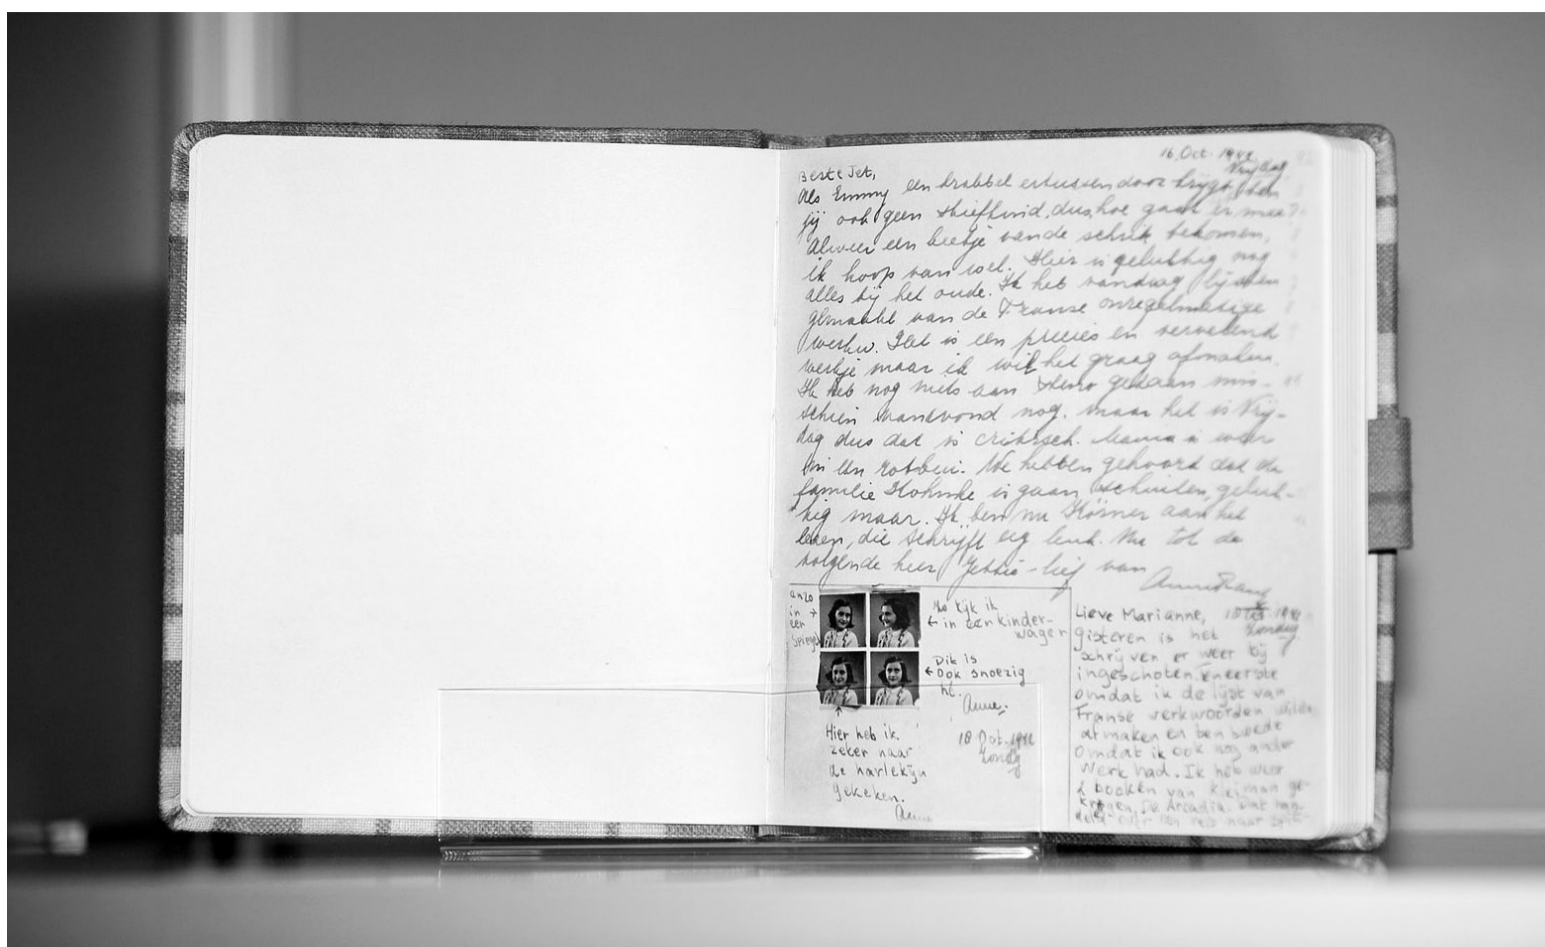 16 Oct. 1942
Vrijdag
Beste Jet,
Als Emmy een krabbel ertussendoor krijgt, ben
jij ook geen stiefkind, dus, hoe gaat er mee?
Alweer een beetje van de schrik bekomen,
ik hoop van wel. Hier is gelukkig nog
alles bij het oude. Ik heb vandaag lijsten
gemaakt van de Franse onregelmatige
werkw. Het is een precies en vervelend
werkje maar ik wil het graag afmaken.
Ik heb nog niets aan Steno gedaan mis-
schien vanavond nog. maar het is Vrij-
dag dus dat is critisch. Mama is weer
in een rotbui. We hebben gehoord dat de
familie is gaan schuilen, geluk-
kig maar. Ik ben nu Körner aan het
lezen, die schrijft erg leuk. Nu tot de
volgende keer Jettie-lief van
Anne Frank
anzo
in →
een
spiegel
Zo kijk ik
← in een kinder-
wagen
Dit is
← ook snoezig
hé.
Anne.
↑
Hier heb ik
zeker naar
de harlekijn
gekeken.
Anne
18 Oct. 1942
Zondag
Lieve Marianne, 18 Oct. 1942
Zondag
gisteren is het
schrijven er weer bij
ingeschoten, teneerste
omdat ik de lijst van
Franse werkwoorden wilde
afmaken en ten tweede
omdat ik ook nog ander
werk had. Ik heb weer
2 boeken van Kleiman ge-
kregen, De Arcadia. Dat han-
delt over een reis naar Spits-